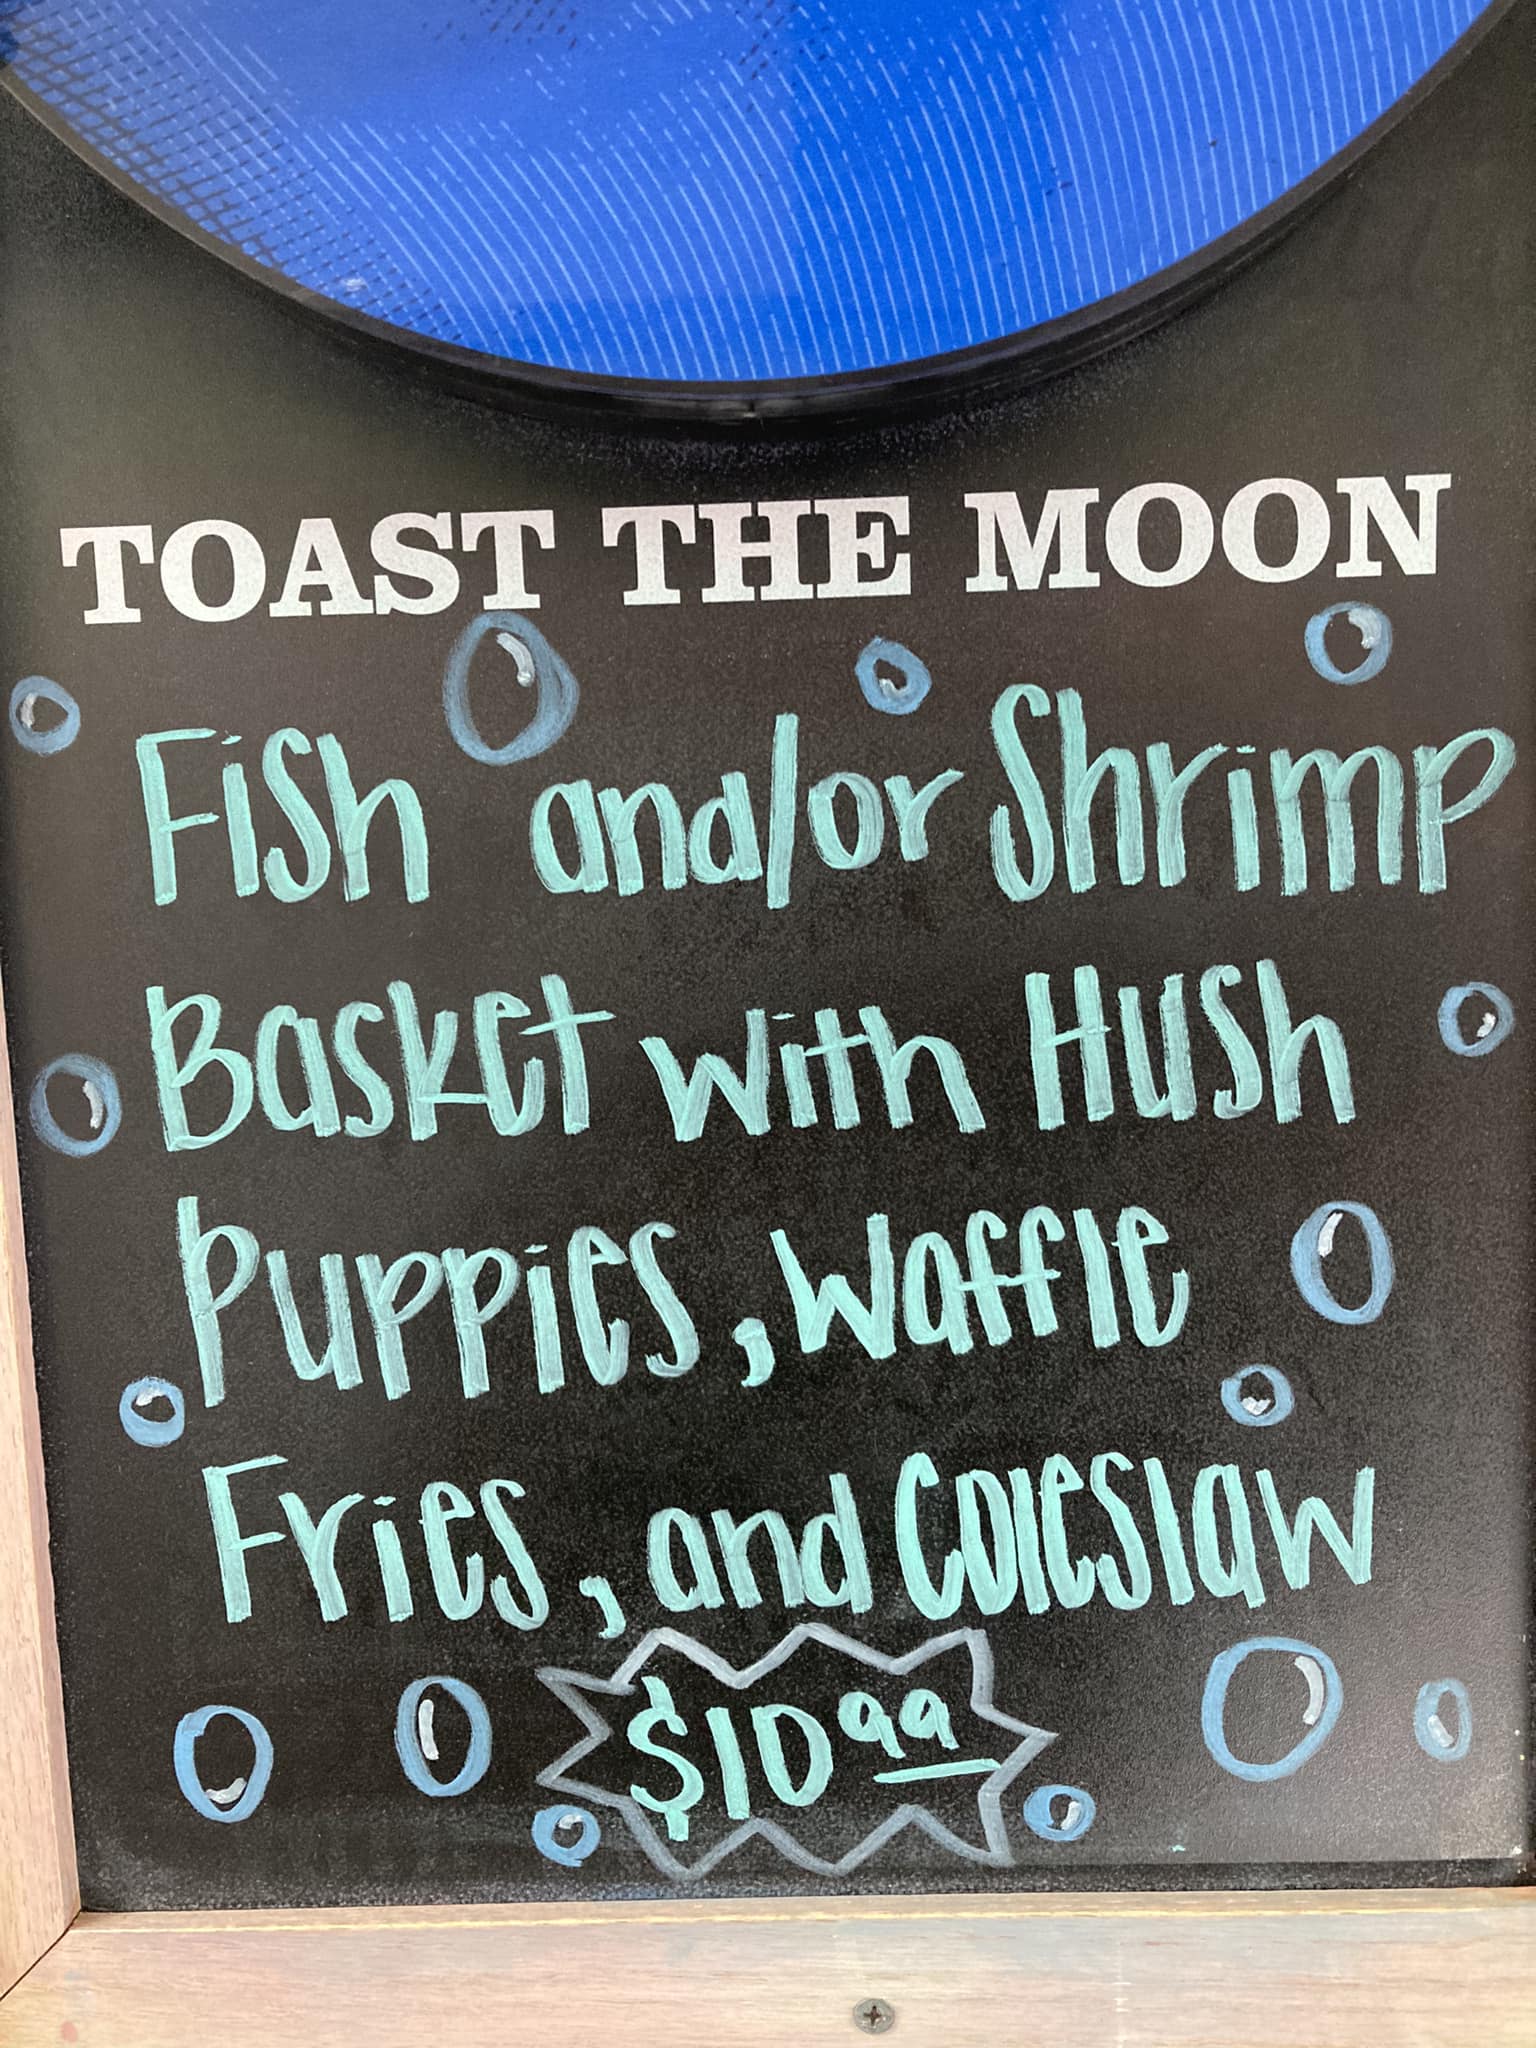 TOAST THE MOON
Fish and/or Shrimp
Basket with Hush
Puppies, Waffle
Fries, and Coleslaw
$10.99